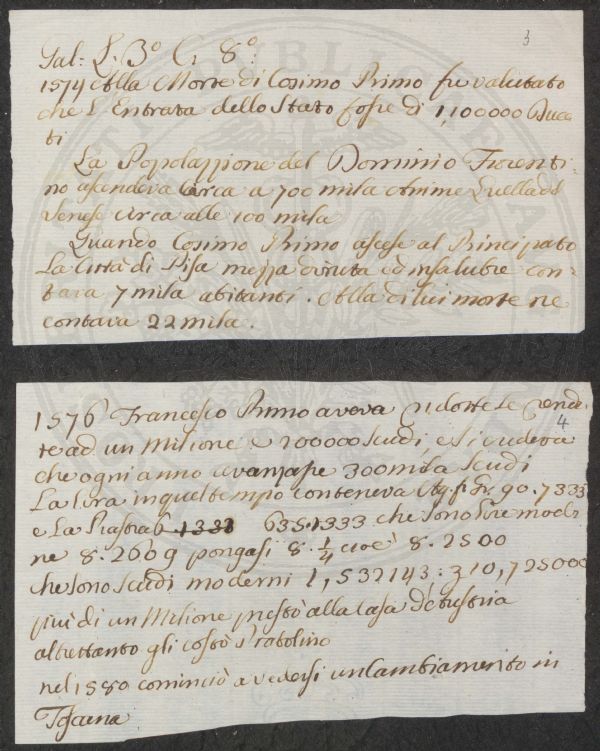 3
Gal: L. 3º C. 8º:
1574 Alla Morte di Cosimo Primo fu valutato
che L'Entrata dello Stato fosse di 1,100000 Duca
ti
La Popolazzione del Dominio Fiorenti
no ascendeva circa a 700 mila Anime Quella
Senese circa alle 100 mila
Quando Cosimo Primo ascese al Principato
La Città di Pisa mezza diruta ed insalubre con=
tava 7 mila abitanti. Alla di lui morte ne
contava 22 mila.
4
1576 Francesco Primo aveva ridotte Le Rendi
te ad un Milione e 200000 Scudi, e si credeva
che ogni anno avanzasse 300 mila Scudi
La Lira in quel tempo conteneva Arg. f. Gr. 90.7333
e La Piastra 635.1333 che sono Lire moder
ne 8.2609 pongasi 8.¼ cioè 8.2500
che sono Scudi moderni 1,532143: 310,725000
più di un Milione prestò alla Casa d'Austria
altrettanto gli costò Pratolino
nel 1580 cominciò a vedersi un Cambiamento in
Toscana